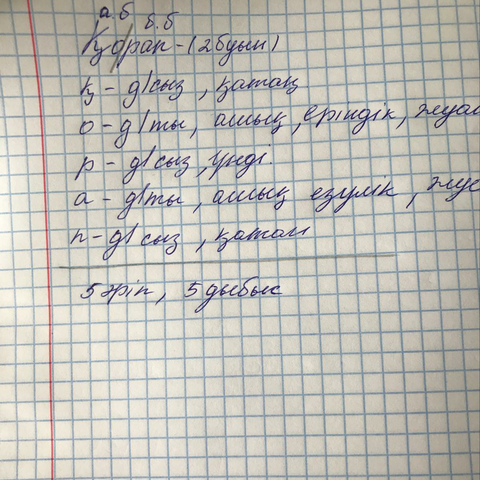 а.б б.б
Қо/рап - (2 буын)
қ - д/сыз, қатаң
о - д/ты, ашық, еріндік, жуан
р - д/сыз, үнді.
а - д/ты, ашық езулік, жу
п - д/сыз, қатаң
5 әріп, 5 дыбыс